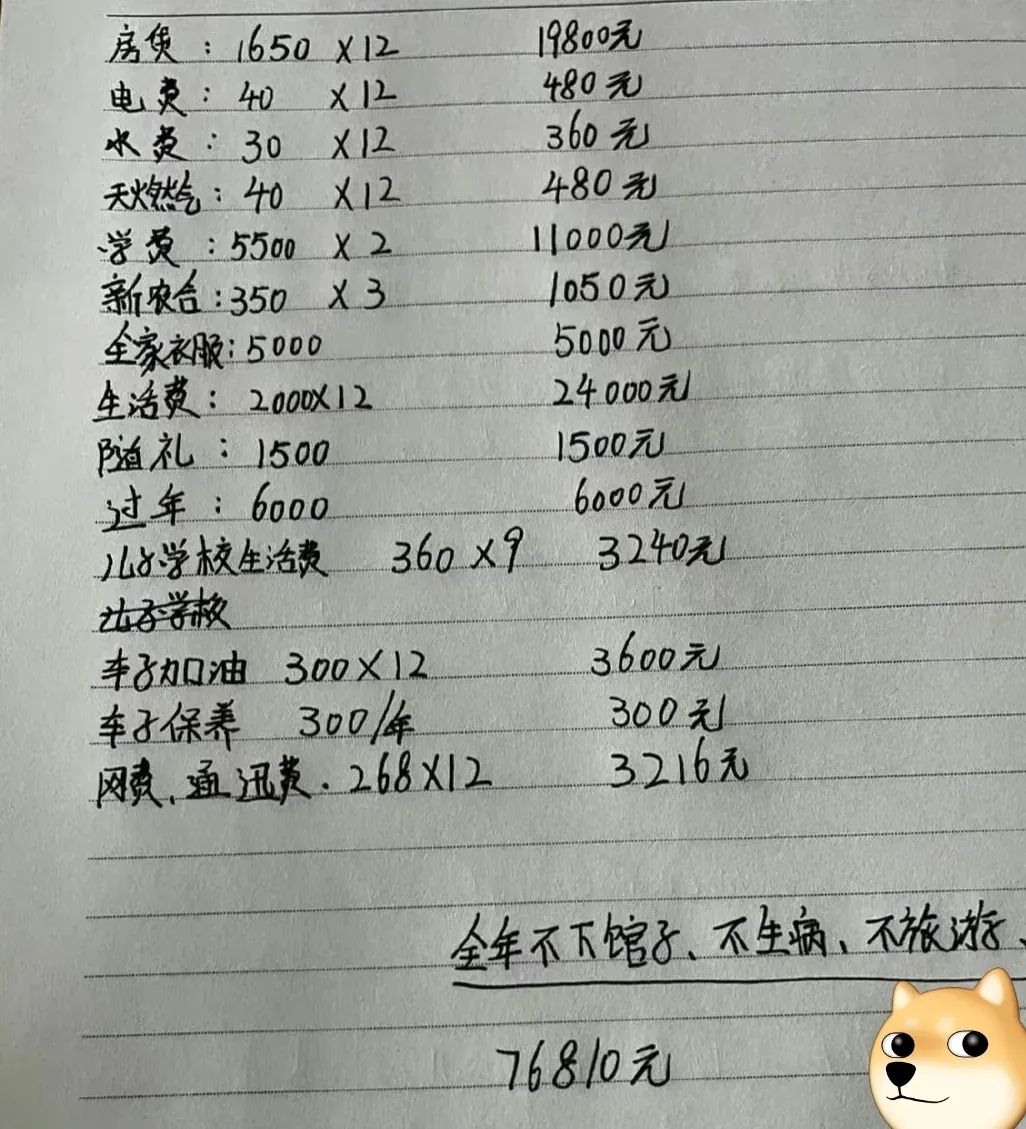 房贷：1650 ×12 19800元
电费：40 ×12 480元
水费：30 ×12 360元
天燃气：40 ×12 480元
学费：5500 ×2 11000元
新农合：350 ×3 1050元
全家衣服：5000 5000元
生活费：2000×12 24000元
随礼：1500 1500元
过年：6000 6000元
儿子学校生活费 360×9 3240元
儿子学校
车子加油 300×12 3600元
车子保养 300/年 300元
网费、通迅费．268×12 3216元
全年不下馆子、不生病、不旅游、
76810元